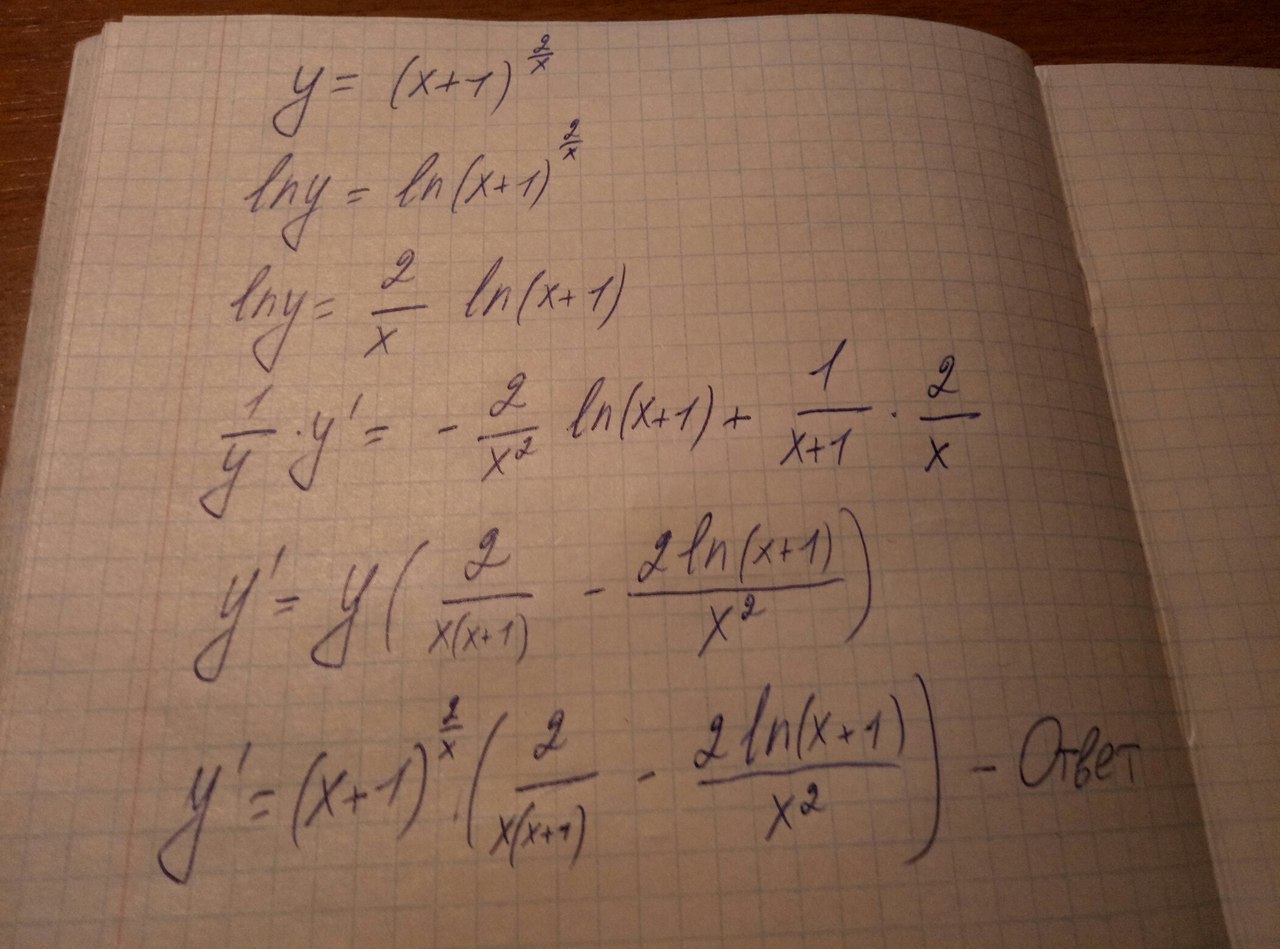 y = (x+1)^(2/x)
ln y = ln(x+1)^(2/x)
ln y = 2/x ln(x+1)
1/y · y' = - 2/x² ln(x+1) + 1/(x+1) · 2/x
y' = y ( 2/(x(x+1)) - 2 ln(x+1)/x² )
y' = (x+1)^(2/x) · ( 2/(x(x+1)) - 2 ln(x+1)/x² ) - Ответ